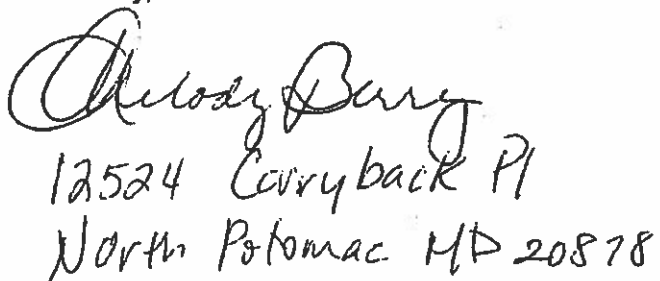 Melody Berry
12524 Carryback Pl
North Potomac MD 20878